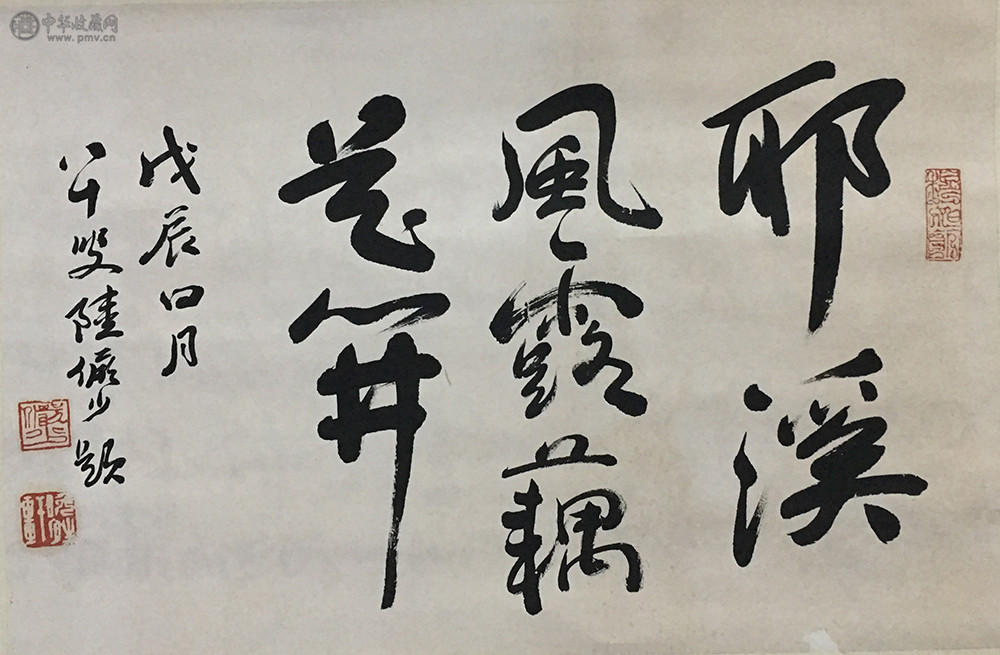 耶溪
風露藕
花開
戊辰四月
八十叟陸儼少題
中华收藏网
www.pmv.cn